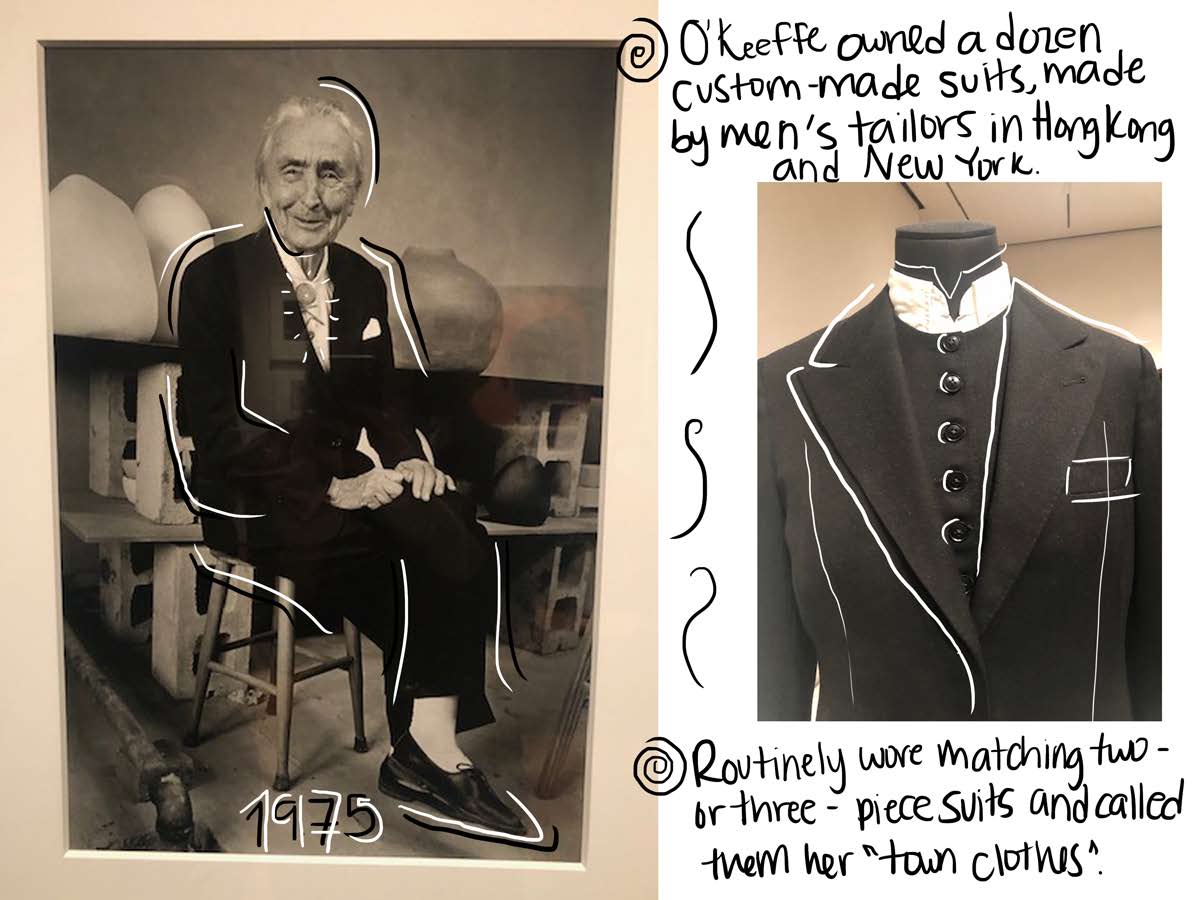 O'Keeffe owned a dozen
custom-made suits, made
by men's tailors in Hong Kong
and New York.
1975
Routinely wore matching two-
or three-piece suits and called
them her "town clothes".